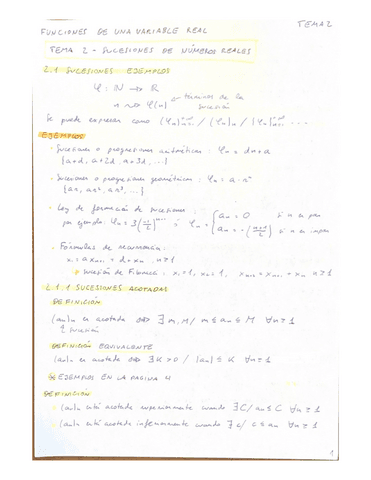 TEMA 2
FUNCIONES DE UNA VARIABLE REAL
TEMA 2 - SUCESIONES DE NÚMEROS REALES
2.1 SUCESIONES EJEMPLOS
φ: ℕ → ℝ
n → φ(n) términos de la sucesión
Se puede expresar como
EJEMPLOS
· Sucesiones o progresiones aritméticas: φn = dn+a
{a+d, a+2d, a+3d, ...}
· Sucesiones o progresiones geométricas: φn = a·rⁿ
{ar, ar², ar³, ...}
· Ley de formación de sucesiones:
por ejemplo: an = 0 si n es par
si n es impar
· Fórmulas de recurrencia:
n≥1
Sucesión de Fibonacci: x₁=1, x₂=1, n≥1
2.1.1 SUCESIONES ACOTADAS
DEFINICIÓN
(an)n es acotada ⟺ ∃ m, M / m ≤ an ≤ M ∀n≥1
sucesión
DEFINICIÓN EQUIVALENTE
(an)n es acotada ⟺ ∃K>0 / |an| ≤ K ∀n≥1
EJEMPLOS EN LA PÁGINA 4
DEFINICIÓN
· (an)n está acotada superiormente cuando ∃C / an ≤ C ∀n≥1
· (an)n está acotada inferiormente cuando ∃c / c ≤ an ∀n≥1
1